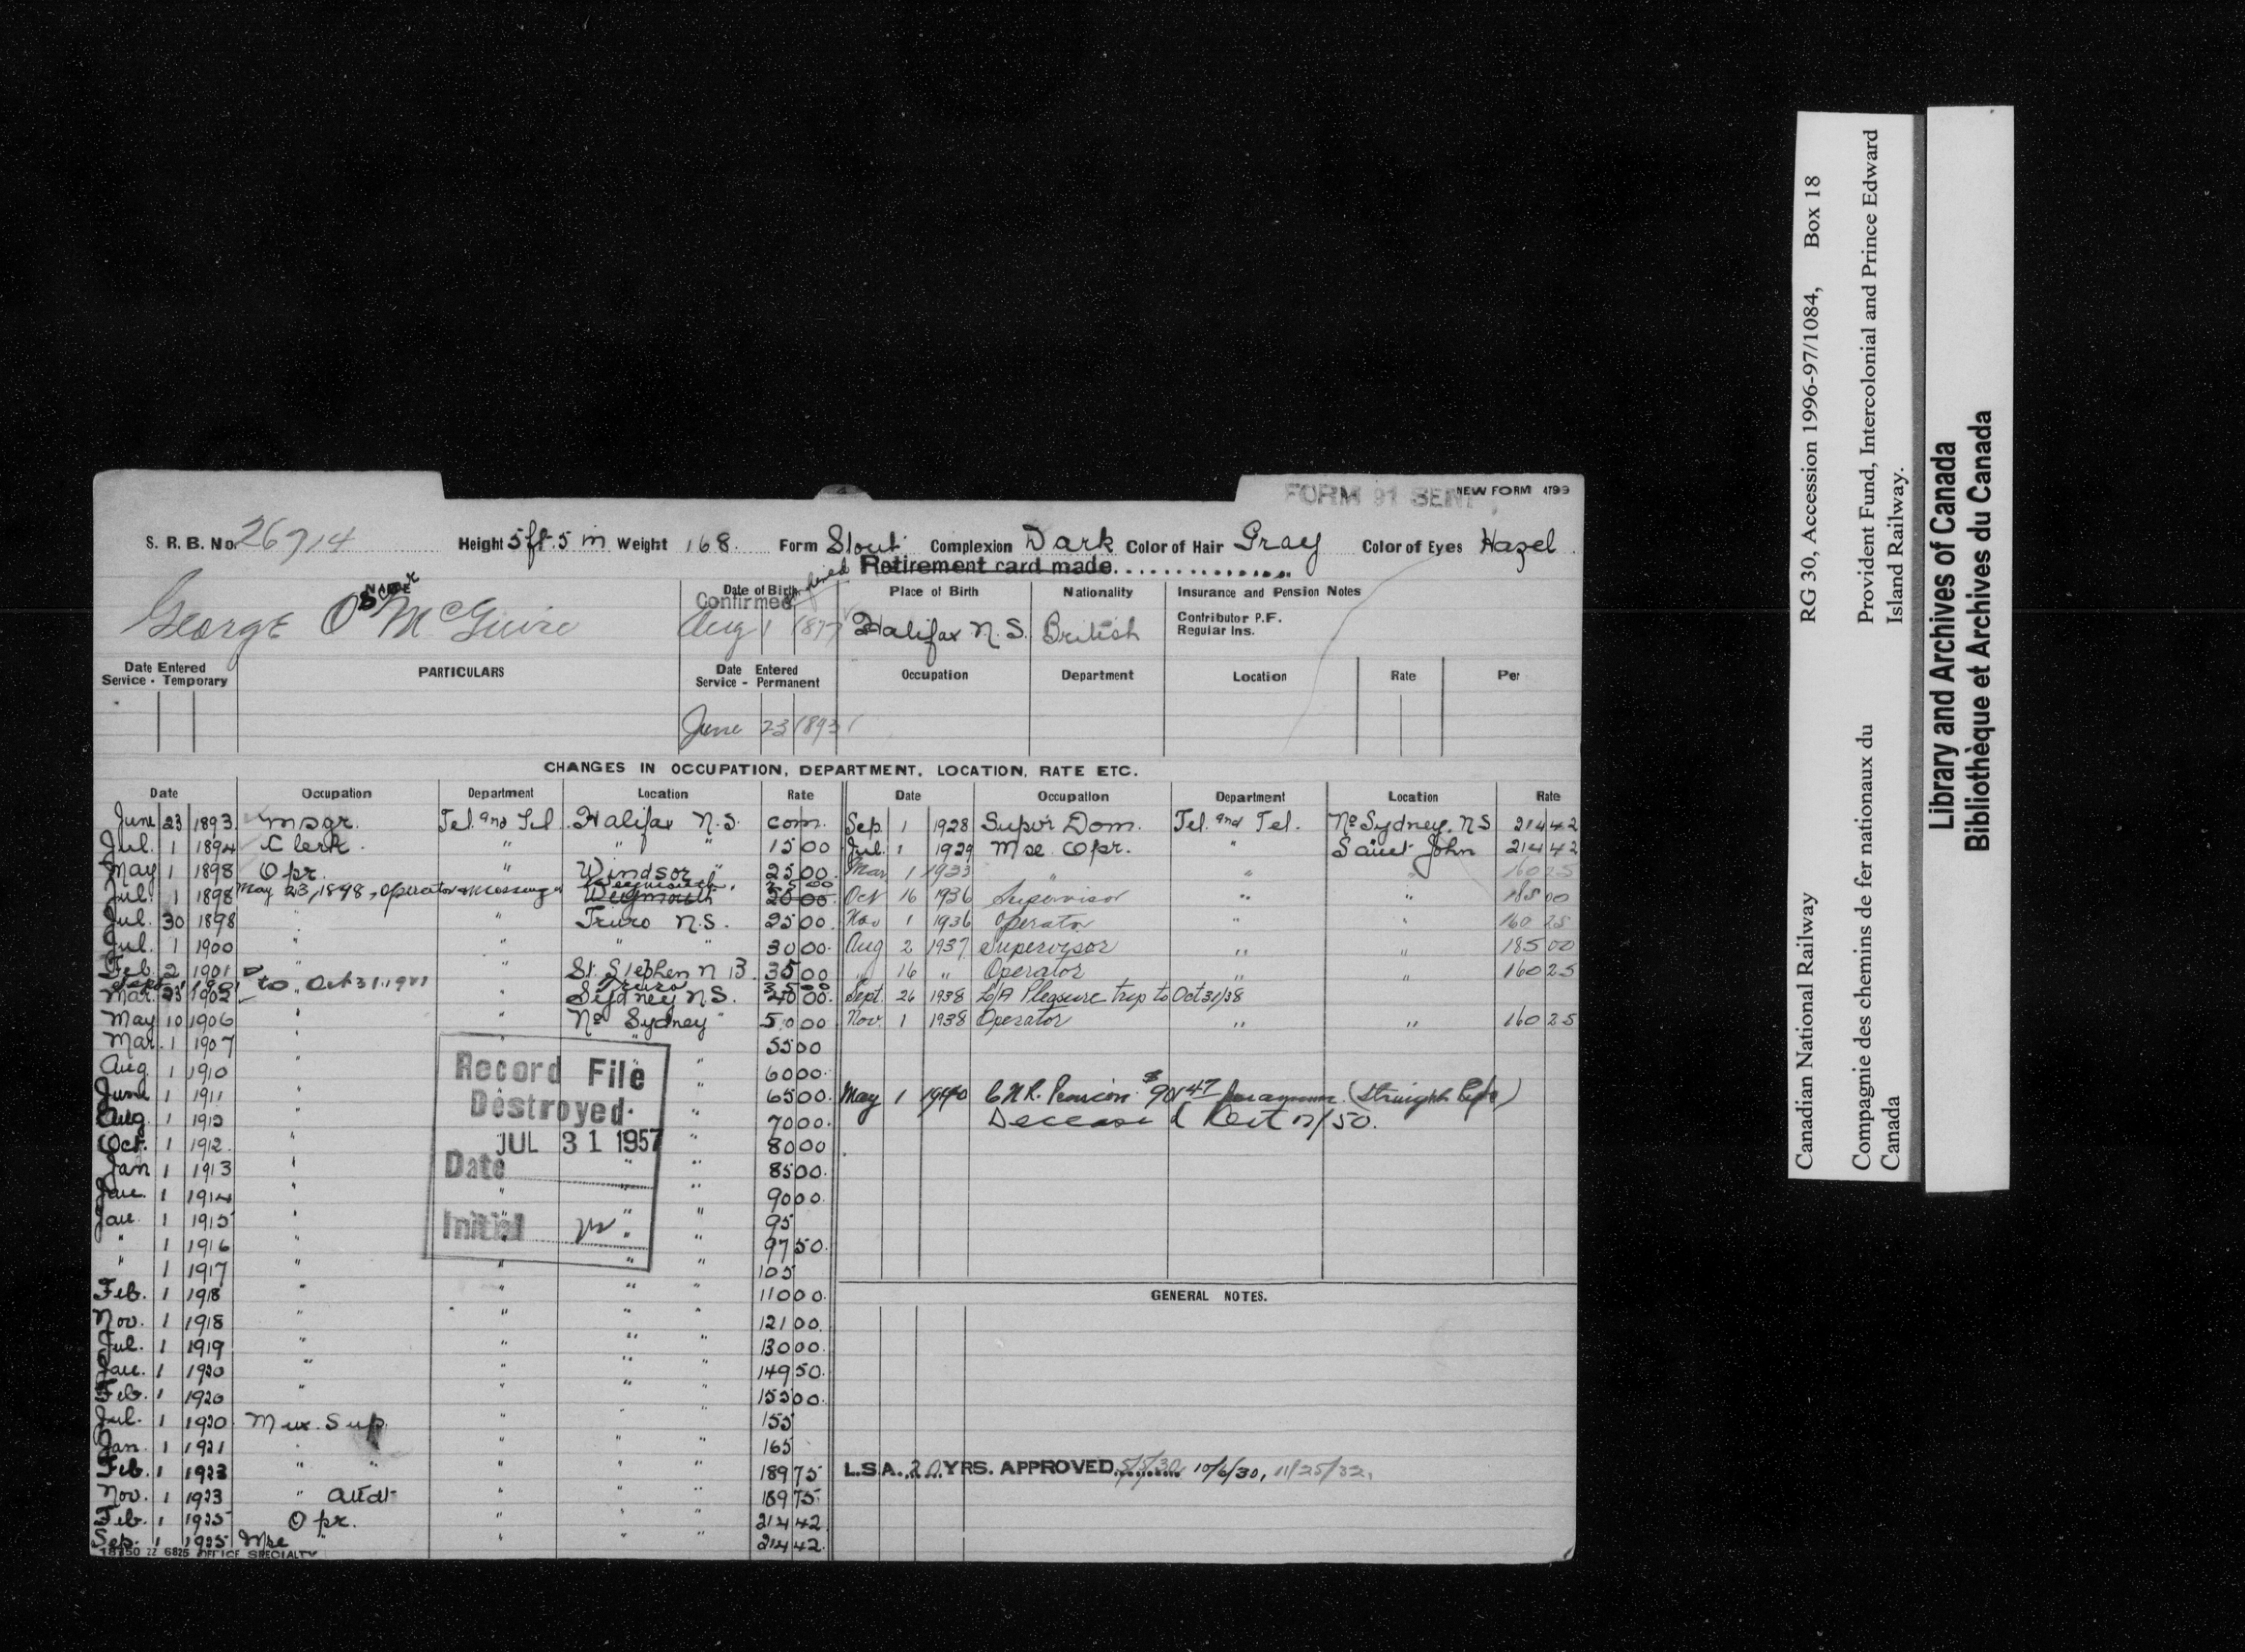 FORM 91 SENT
NEW FORM 4799
S. R. B. No. 26714 Height 5 ft. 5 in Weight 168. Form Stout Complexion Dark Color of Hair Gray Color of Eyes Hazel
Retirement card made
NAME Date of Birth Place of Birth Nationality Insurance and Pension Notes
Confirmed
George O McGuire Aug 1 1877 Halifax N.S. British
Contributor P.F.
Regular Ins.
Date Entered Service - Temporary PARTICULARS Date Entered Service - Permanent Occupation Department Location Rate Per
June 23 1893
CHANGES IN OCCUPATION, DEPARTMENT, LOCATION, RATE ETC.
Date Occupation Department Location Rate
June 23 1893 Msgr. Tel. and Tel. Halifax N.S. com.
Jul. 1 1894 Clerk. " " " 15 00
May 1 1898 Opr. " Windsor " 25 00
Jul. 1 1898 May 23, 1898, Operator & Messenger Weymouth 20 00
Jul. 30 1898 " " Truro N.S. 25 00
Jul. 1 1900 " " " " 30 00
Feb. 2 1901 " " St. Stephen N B. 35 00
to Oct 31, 1901 Truro
Mar. 23 1902 " " Sydney N.S. 40 00
May 10 1906 " " No Sydney " 50 00
Mar. 1 1907 " " 55 00
Aug. 1 1910 " " 60 00
June 1 1911 " " 65 00
Aug. 1 1912 " " 70 00
Oct. 1 1912 " " 80 00
Jan 1 1913 " " " 85 00
Jan. 1 1914 " " " 90 00
Jan. 1 1915 " " " " 95
" 1 1916 " " " " 97 50
" 1 1917 " " " " 105
Feb. 1 1918 " " " " 110 00
Nov. 1 1918 " " " " 121 00
Jul. 1 1919 " " " " 130 00
Jan. 1 1920 " " " " 149 50
Feb. 1 1920 " " " " 155 00
Jul. 1 1920 Mux. Sup. " " " 155
Jan. 1 1921 " " " " 165
Feb. 1 1923 " " " " " 189 75
Nov. 1 1923 " " " " 189 75
Feb. 1 1925 Opr. " " " 214 42
Sep. 1 1925 Mse " " " " 214 42
18350 22 6825 OFFICE SPECIALTY
Record File
Destroyed.
JUL 31 1957
Date
Initial
Date Occupation Department Location Rate
Sep. 1 1928 Supvr Dom. Tel. and Tel. No Sydney, N S 214 42
Jul. 1 1929 Mse Opr. " Saint John 214 42
Mar 1 1933 " " " 160 25
Oct 16 1936 Supervisor " " 185 00
Nov 1 1936 Operator " " 160 25
Aug 2 1937 Supervisor " " 185 00
" 16 " Operator " " 160 25
Sept. 26 1938 L/A Pleasure trip to Oct 31/38
Nov. 1 1938 Operator " " 160 25
May 1 1940 C.N.R. Pension $901 47 per annum (Straight Life)
Deceased Oct
GENERAL NOTES.
L.S.A. 20 YRS. APPROVED 5/5/30 10/6/30, 11/25/32,
Canadian National Railway RG 30, Accession 1996-97/1084, Box 18
Compagnie des chemins de fer nationaux du Canada
Provident Fund, Intercolonial and Prince Edward Island Railway.
Library and Archives of Canada
Bibliothèque et Archives du Canada